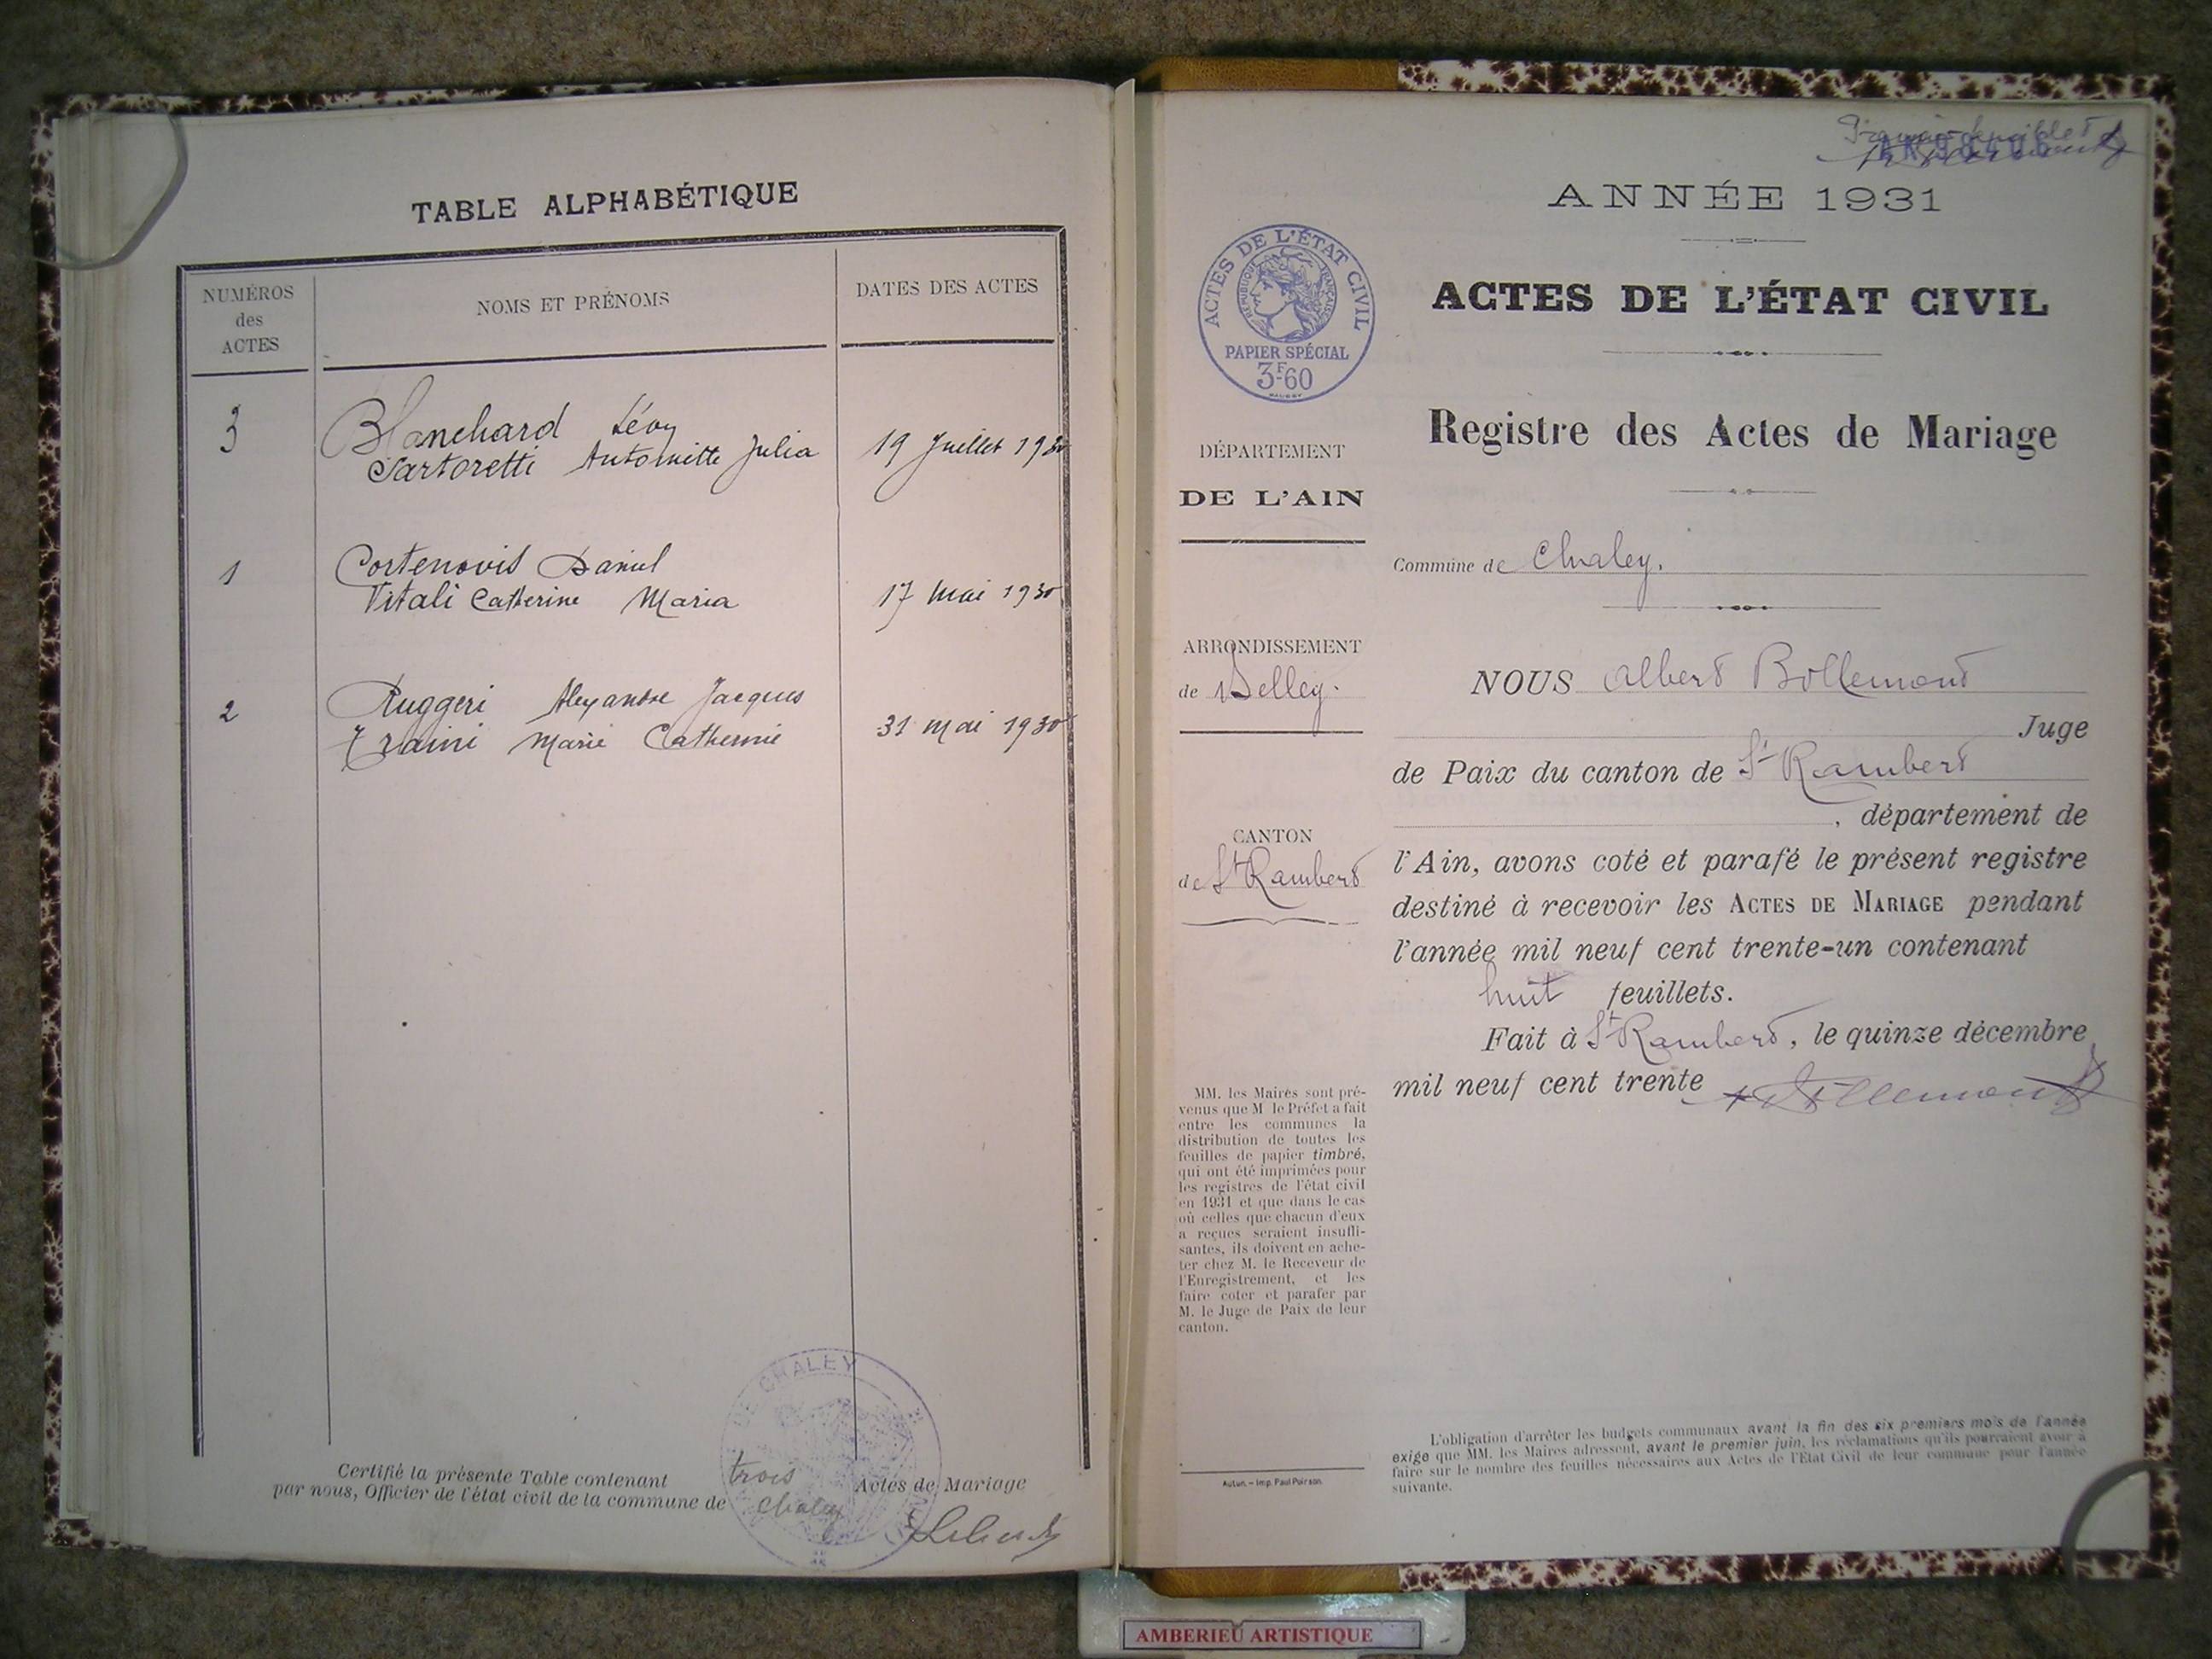 TABLE ALPHABÉTIQUE
NUMÉROS
des
ACTES
NOMS ET PRÉNOMS
DATES DES ACTES
3
Blanchard Lévy
Sartoretti Antoinette Julia
19 Juillet 1930
1
Cortenovis Daniel
Vitali Catherine Maria
17 mai 1930
2
Ruggeri Alexandre Jacques
Traini Marie Catherine
31 mai 1930
DE CHALEY
Certifié la présente Table contenant trois Actes de Mariage
par nous, Officier de l'état civil de la commune de Chaley
ANNÉE 1931
ACTES DE L'ÉTAT CIVIL
RÉPUBLIQUE FRANÇAISE
PAPIER SPÉCIAL
3F60
DÉPARTEMENT
DE L'AIN
ARRONDISSEMENT
de Belley.
CANTON
de St Rambert
MM. les Maires sont pré-
venus que M le Préfet a fait
entre les communes la
distribution de toutes les
feuilles de papier timbré,
qui ont été imprimées pour
les registres de l'état civil
en 1931 et que dans le cas
où celles que chacun d'eux
a reçues seraient insuffi-
santes, ils doivent en ache-
ter chez M. le Receveur de
l'Enregistrement, et les
faire coter et parafer par
M. le Juge de Paix de leur
canton.
Autun. – Imp. Paul Poirson
ACTES DE L'ÉTAT CIVIL
Registre des Actes de Mariage
Commune de Chaley.
NOUS Albert Bollemont
Juge
de Paix du canton de St Rambert
, département de
l'Ain, avons coté et parafé le présent registre
destiné à recevoir les ACTES DE MARIAGE pendant
l'année mil neuf cent trente-un contenant
huit feuillets.
Fait à St Rambert, le quinze décembre
mil neuf cent trente
ABollemont
L'obligation d'arrêter les budgets communaux avant la fin des six premiers mois de l'année
exige que MM. les Maires adressent, avant le premier juin, les réclamations qu'ils pourraient avoir à
faire sur le nombre des feuilles nécessaires aux Actes de l'Etat Civil de leur commune pour l'année
suivante.
AMBERIEU ARTISTIQUE